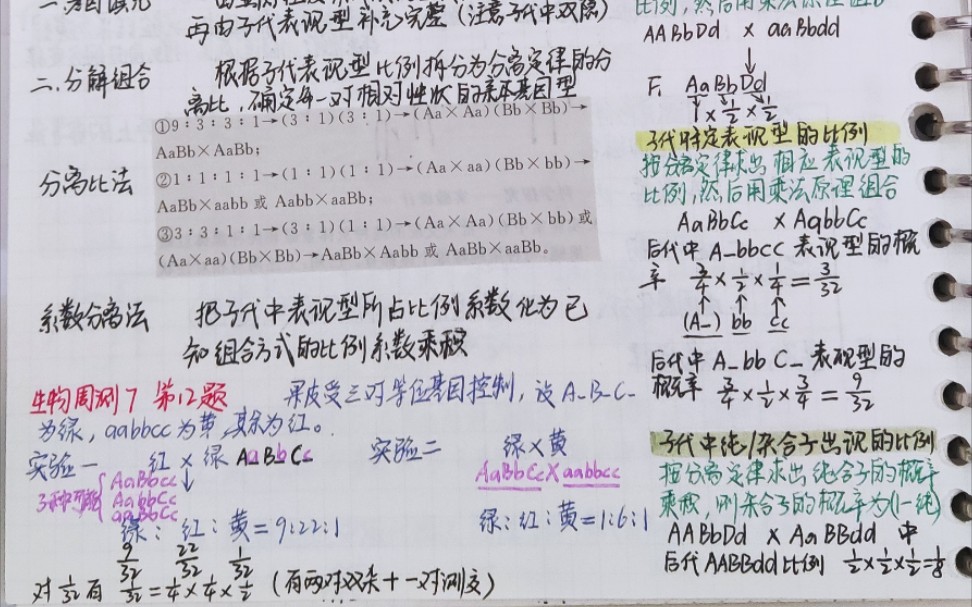 再由子代表现型补充完整（注意子代中双隐）
二.分解组合 根据子代表现型比例拆分为分离定律的分
离比，确定每一对相对性状的亲本基因型
分离比法
①9∶3∶3∶1→(3∶1)(3∶1)→(Aa×Aa)(Bb×Bb)→
AaBb×AaBb;
②1∶1∶1∶1→(1∶1)(1∶1)→(Aa×aa)(Bb×bb)→
AaBb×aabb 或 Aabb×aaBb;
③3∶3∶1∶1→(3∶1)(1∶1)→(Aa×Aa)(Bb×bb)或
(Aa×aa)(Bb×Bb)→AaBb×Aabb 或 AaBb×aaBb。
系数分离法 把子代中表现型所占比例系数化为已
知组合方式的比例系数乘积
生物周测7 第12题 果皮受三对等位基因控制，设A_B_C_
为绿，aabbcc为黄，其余为红。
实验一 红 × 绿 AaBbCc
3种可能 { AaBbcc
AabbCc
aaBbCc
↓
绿: 红: 黄=9:22:1
9/32 22/32 1/32
对 1/32 有 1/32 = 1/4 × 1/4 × 1/2 （有两对双杂+一对测交）
实验二 绿×黄
AaBbCc×aabbcc
绿:红:黄=1:6:1
比例,然后用乘法原理组合
AABbDd × aaBbdd
↓
F₁ AaBbDd
1×1/2×1/2
子代特定表现型的比例
按分离定律求出相应表现型的
比例,然后用乘法原理组合
AaBbCc × AabbCc
后代中A_bbcc表现型的概
率 3/4×1/2×1/4=3/32
↑ ↑ ↑
(A_) bb cc
后代中A_bbC_表现型的
概率 3/4×1/2×3/4=9/32
子代中纯/杂合子出现的比例
按分离定律求出纯合子的概率
乘积,则杂合子的概率为(1-纯)
AABbDd × AaBBdd 中
后代AABBdd比例 1/2×1/2×1/2=1/8